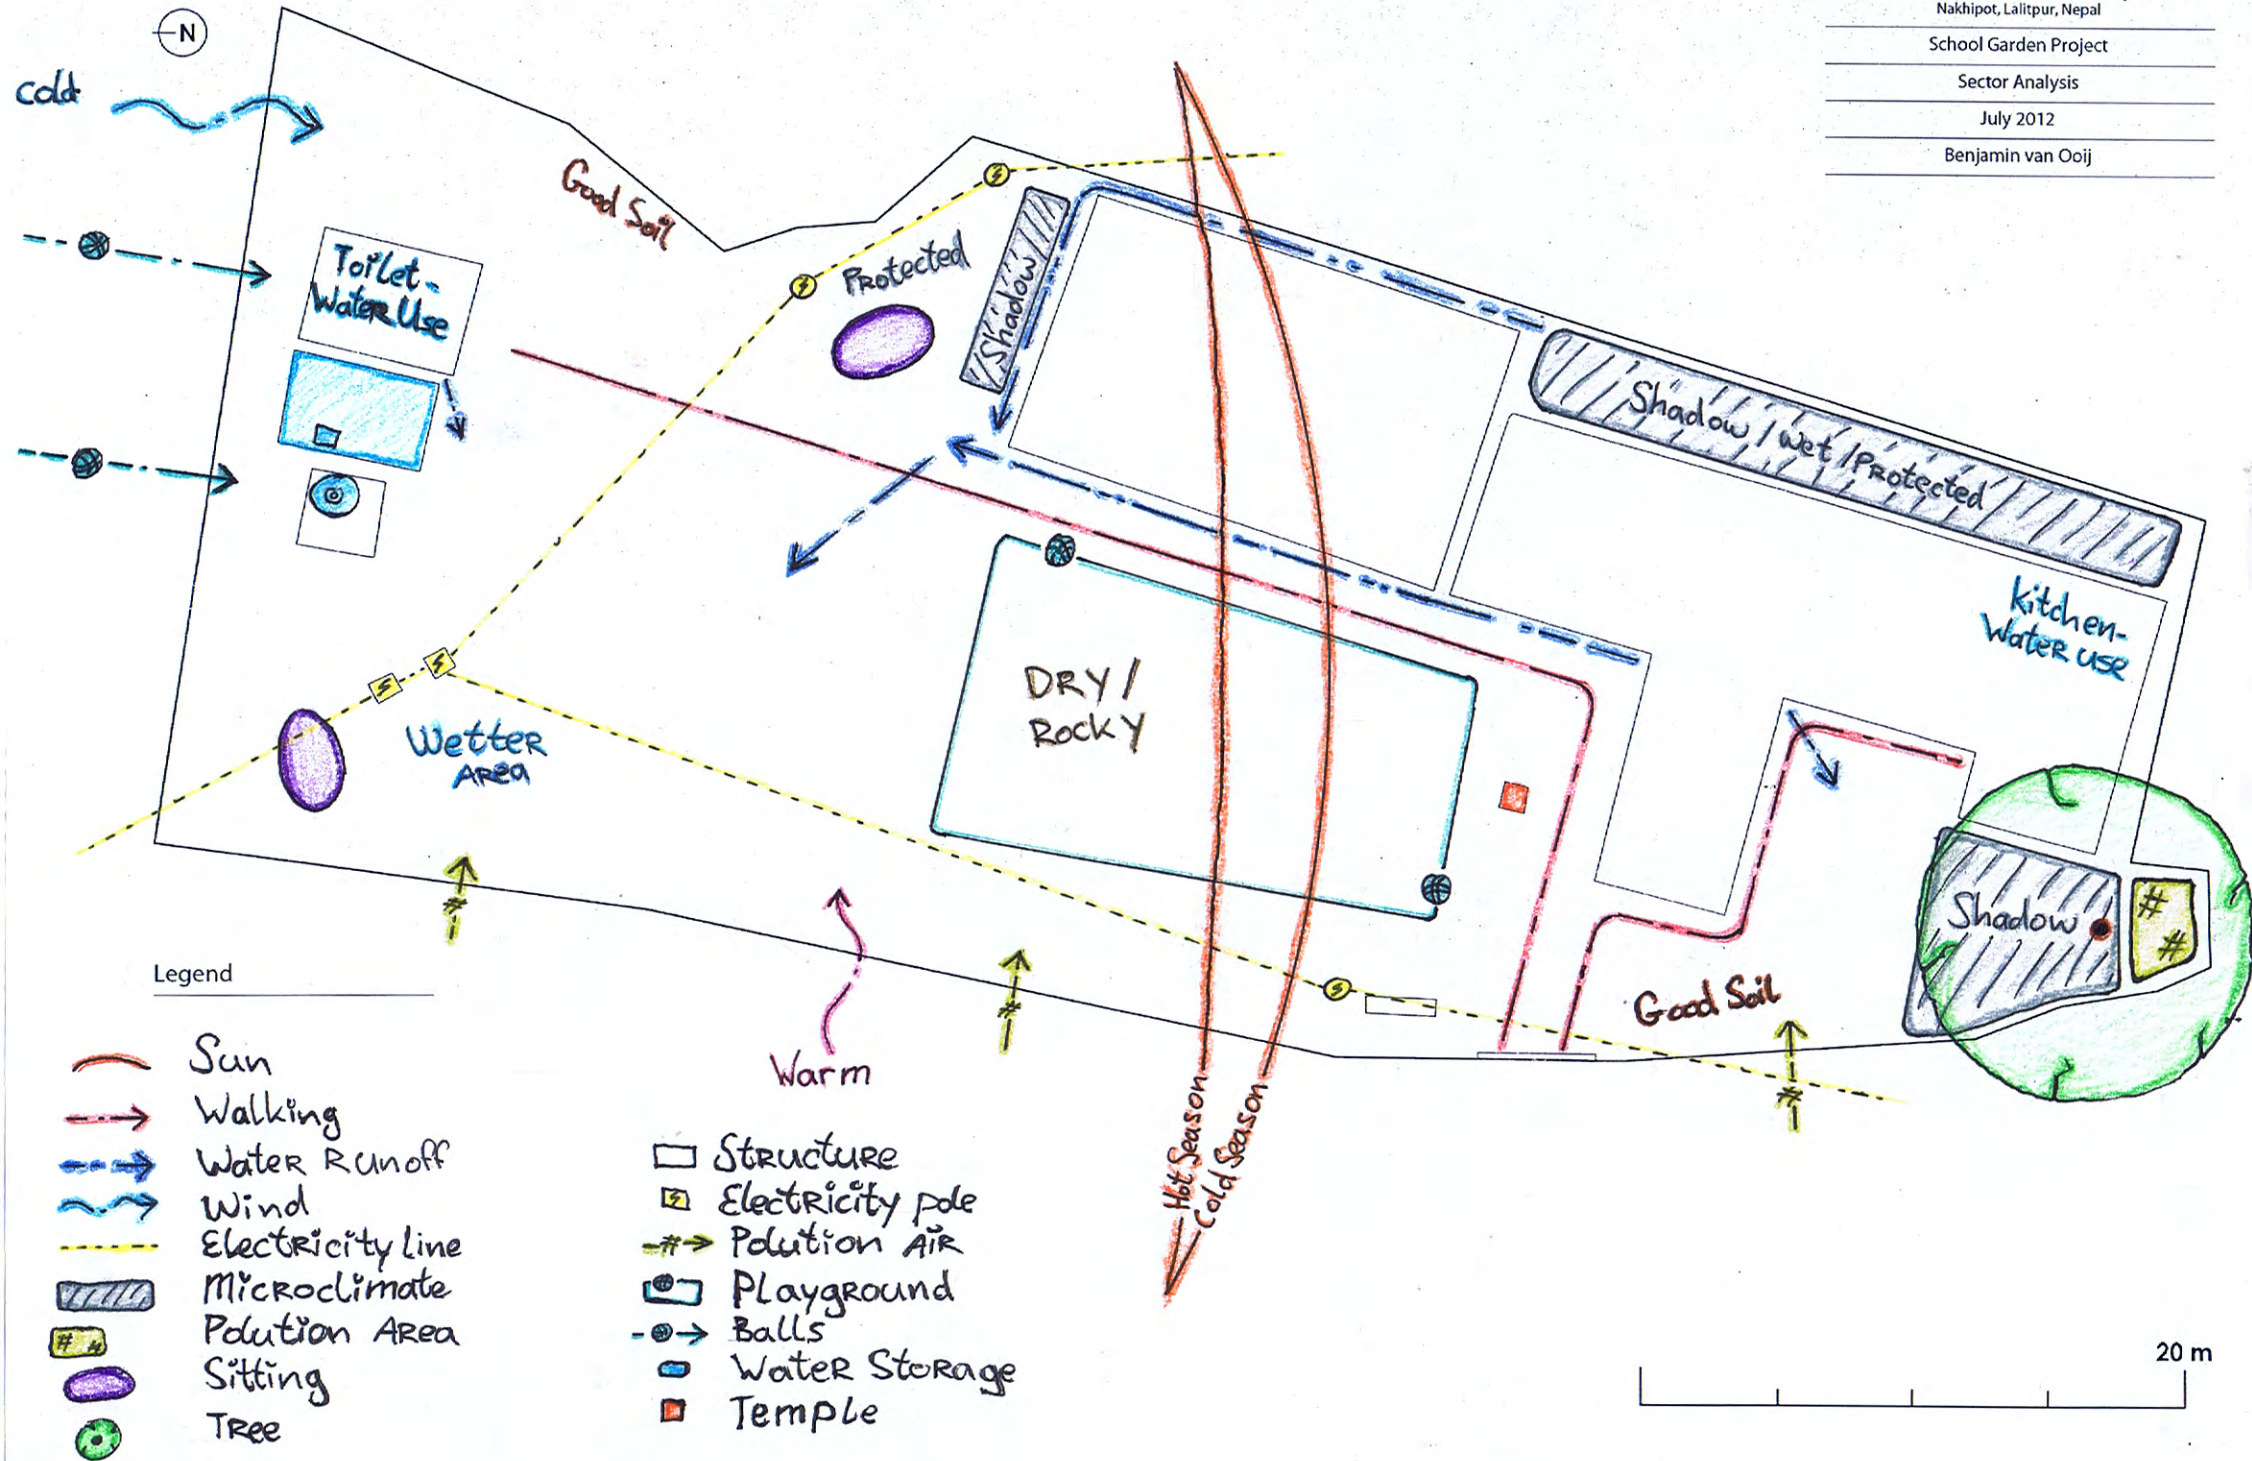 N
Nakhipot, Lalitpur, Nepal
School Garden Project
Sector Analysis
July 2012
Benjamin van Ooij
Cold
Good Soil
Toilet-
Water Use
Protected
Shadow
Shadow / Wet / Protected
Kitchen-
Water use
DRY/
Rocky
Wetter
Area
Shadow
Good Soil
Warm
Hot Season
Cold Season
Legend
Sun
Walking
Water Runoff
Wind
Electricity line
Microclimate
Polution Area
Sitting
Tree
Structure
Electricity pole
Polution Air
Playground
Balls
Water Storage
Temple
20 m